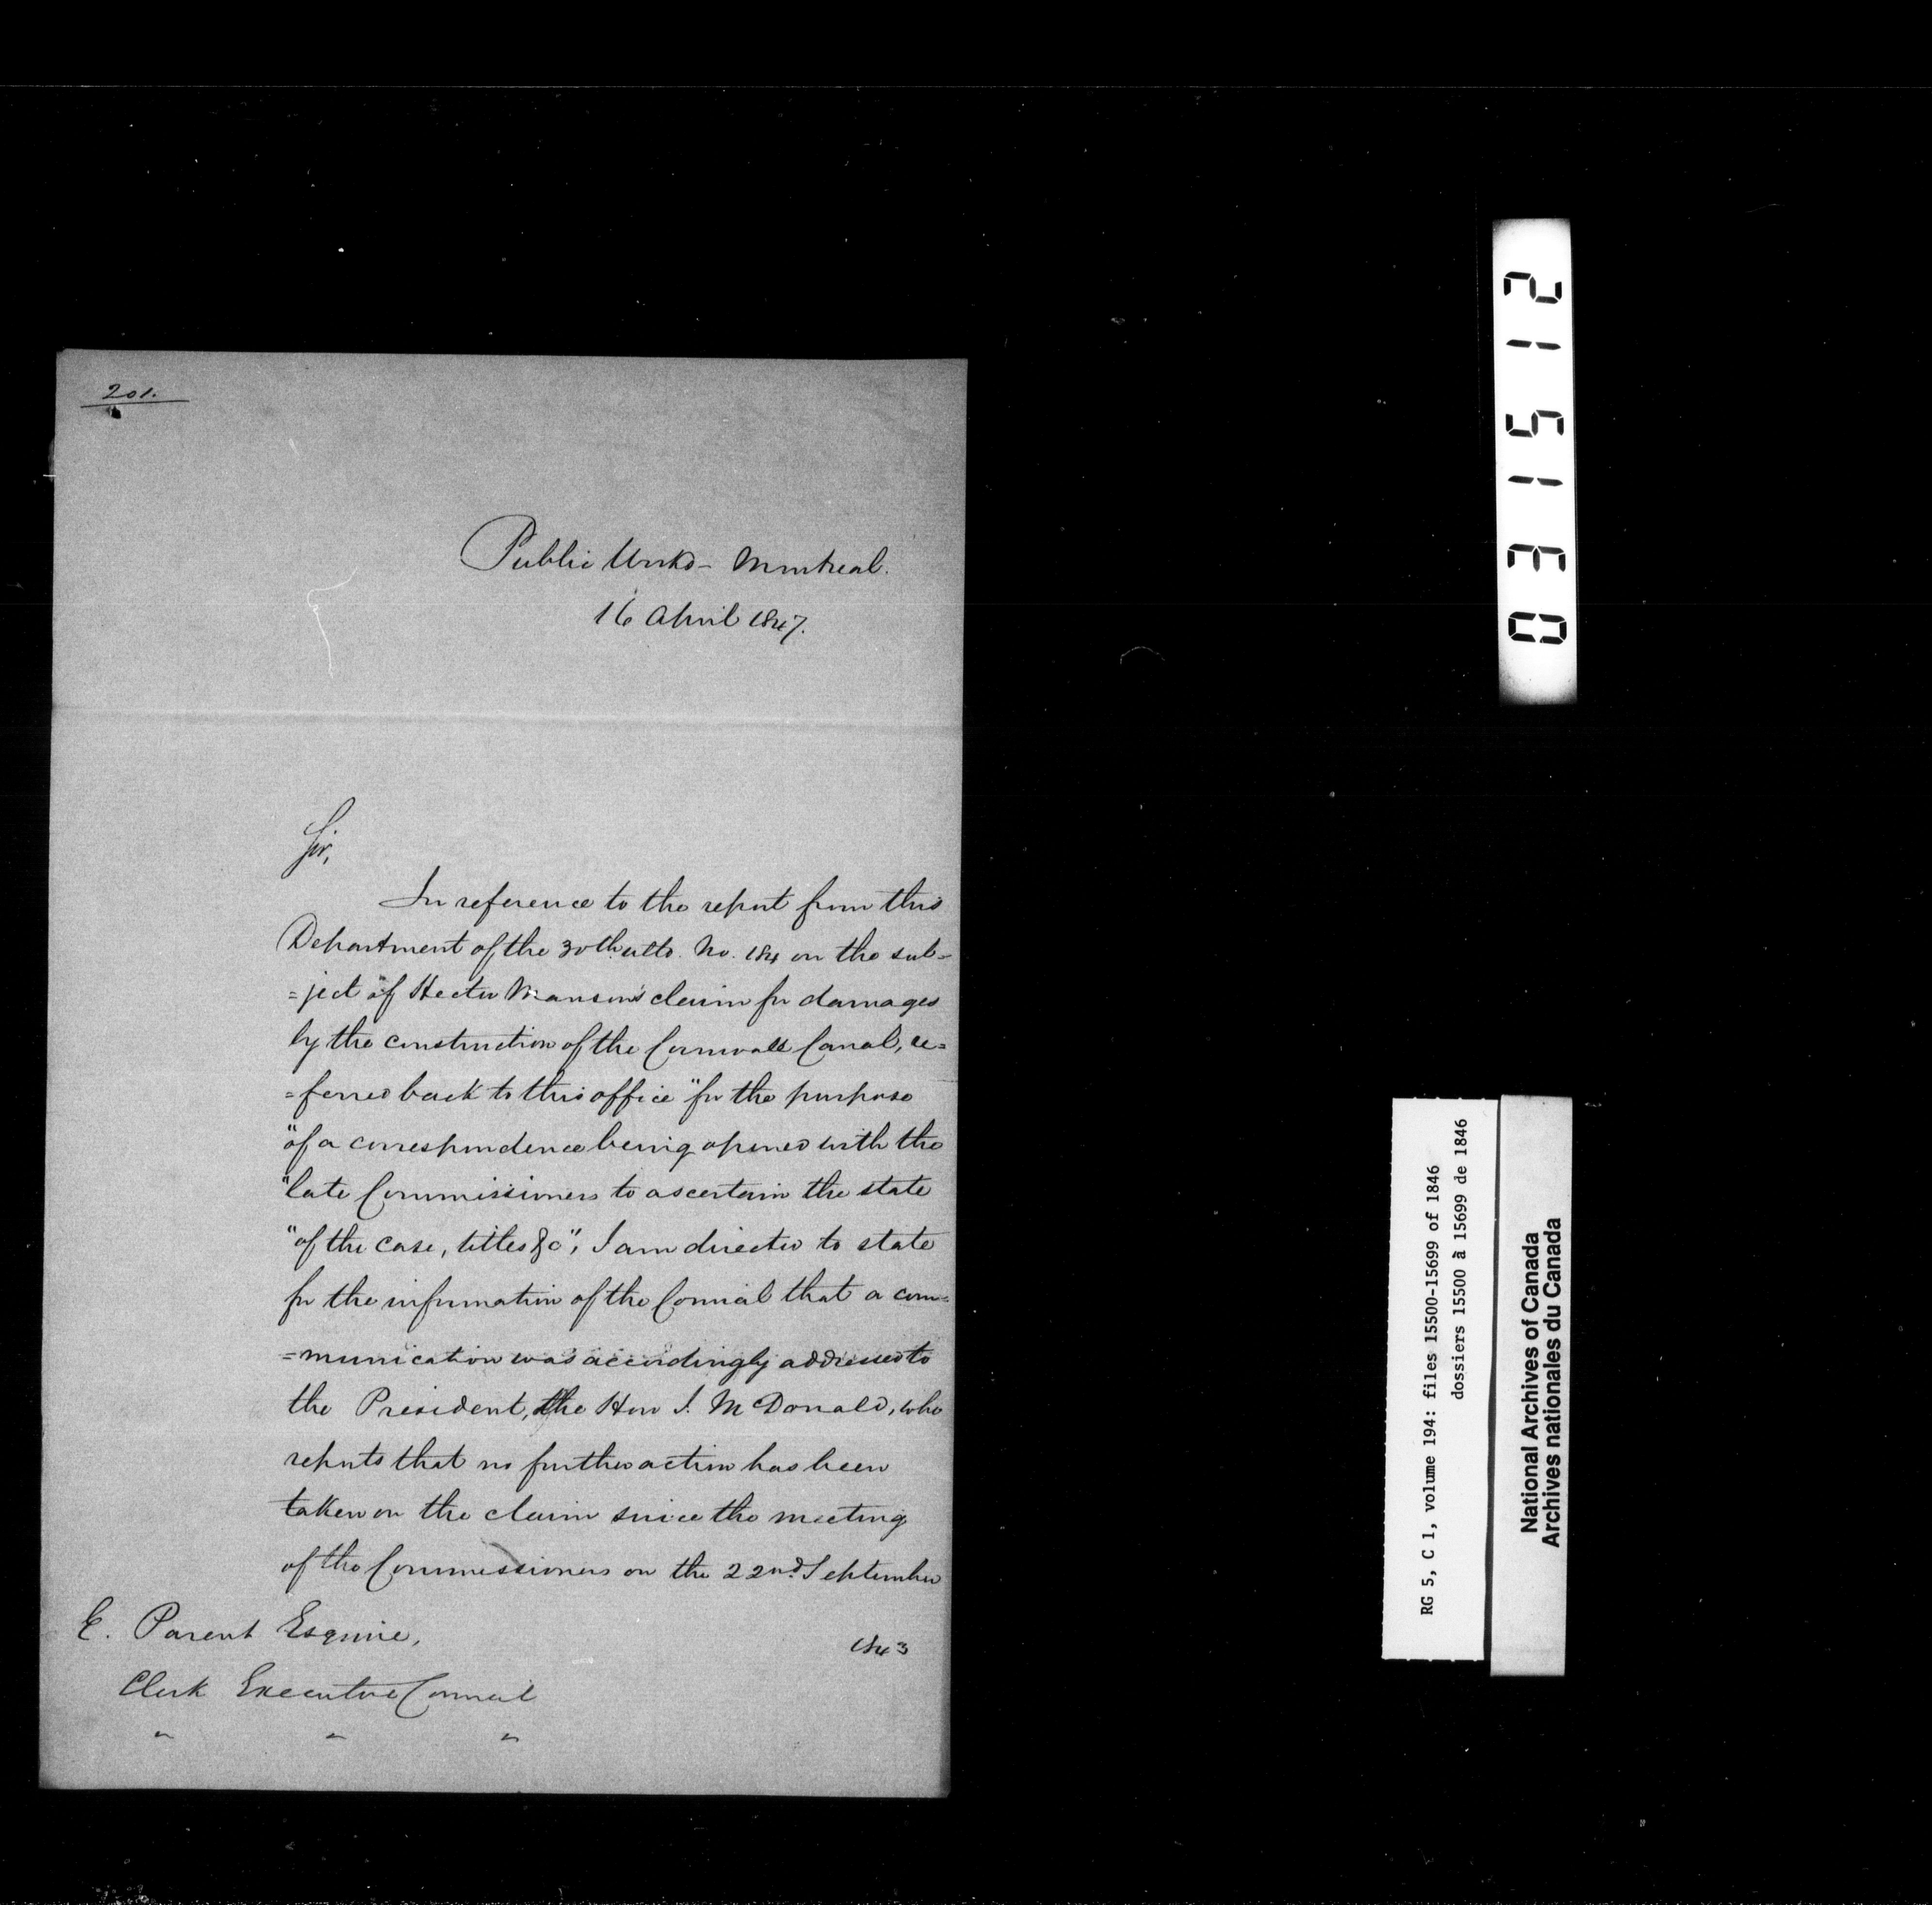 201.
Public Works - Montreal.
16 April 1847.
Sir,
In reference to the report from this
Department of the 30th ulto. No. 184 on the sub=
=ject of Hector Manson's claim for damages
by the construction of the Cornwall Canal, re=
=ferred back to this office "for the purpose
"of a correspondence being opened with the
"late Commissioners to ascertain the state
"of the case, titles &c", I am directed to state
for the information of the Council that a com=
=munication was accordingly addressed to
the President, the Hon J. McDonald, who
reports that no further action has been
taken on the claim since the meeting
of the Commissioners on the 22nd. September
1843
E. Parent Esquire,
Clerk Executive Council
" " "
031512
RG 5, C 1, volume 194: files 15500-15699 of 1846
dossiers 15500 à 15699 de 1846
National Archives of Canada
Archives nationales du Canada